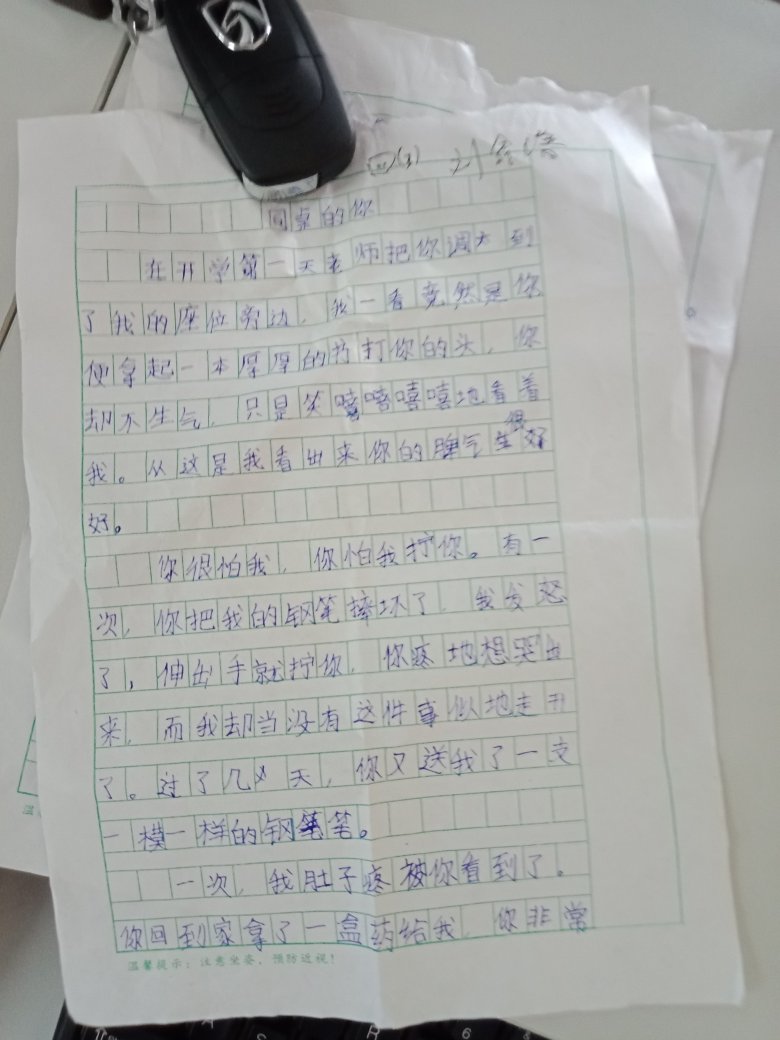 同桌的你
在开学第一天老师把你调大到
了我的座位旁边，我一看竟然是你
便拿起一本厚厚的书打你的头，你
却不生气，只是笑嘻嘻嘻嘻地看着
我。从这是我看出来你的脾气很好
好。
你很怕我，你怕我拧你。有一
次，你把我的钢笔摔坏了，我发怒
了，伸出手就拧你，你疼地想哭出
来，而我却当没有这件事似地走开
了。过了几天，你又送我了一支
一模一样的钢笔。
一次，我肚子疼被你看到了。
你回到家拿了一盒药给我，你非常
温馨提示：注意坐姿，预防近视！